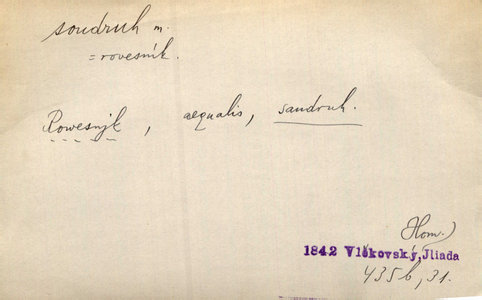 soudruh m.
= rovesník.
Rowesnjk, aequalis, saudruh.
Hom.)
1842 Vlčkovský, Jliada
435b, 31.